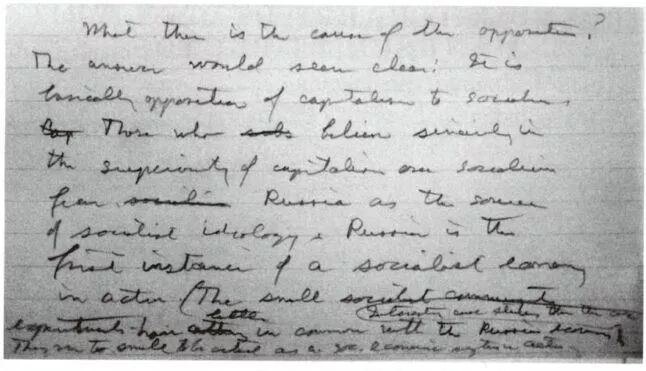 What then is the cause of the opposition?
The answer would seem clear: It is
basically opposition of capitalism to socialism.
Cap Those who subs believe sincerely in
the superiority of capitalism over socialism
fear socialism Russia as the source
of socialist ideology. Russia is the
first instance of a socialist economy
in action (The small socialist community
experiments have little in common with the Russian economy
They are to small to be as a soc. economic system in action